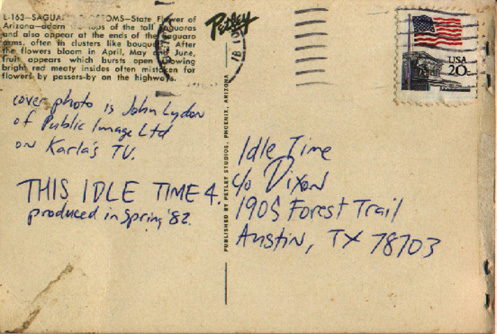 L-163—SAGUARO BLOSSOMS—State Flower of
Arizona—adorn the tops of the tall saguaros
and also appear at the ends of the saguaro
arms, often in clusters like bouquets. After
the flowers bloom in April, May and June,
fruit appears which bursts open showing
bright red meaty insides often mistaken for
flowers by passers-by on the highways.
Petley
USA
20c
cover photo is John Lydon
of Public Image Ltd
on Karla's TV.
THIS IDLE TIME 4.
produced in Spring '82.
PUBLISHED BY PETLEY STUDIOS, PHOENIX, ARIZONA
Idle Time
c/o Dixon
1905 Forest Trail
Austin, TX 78703